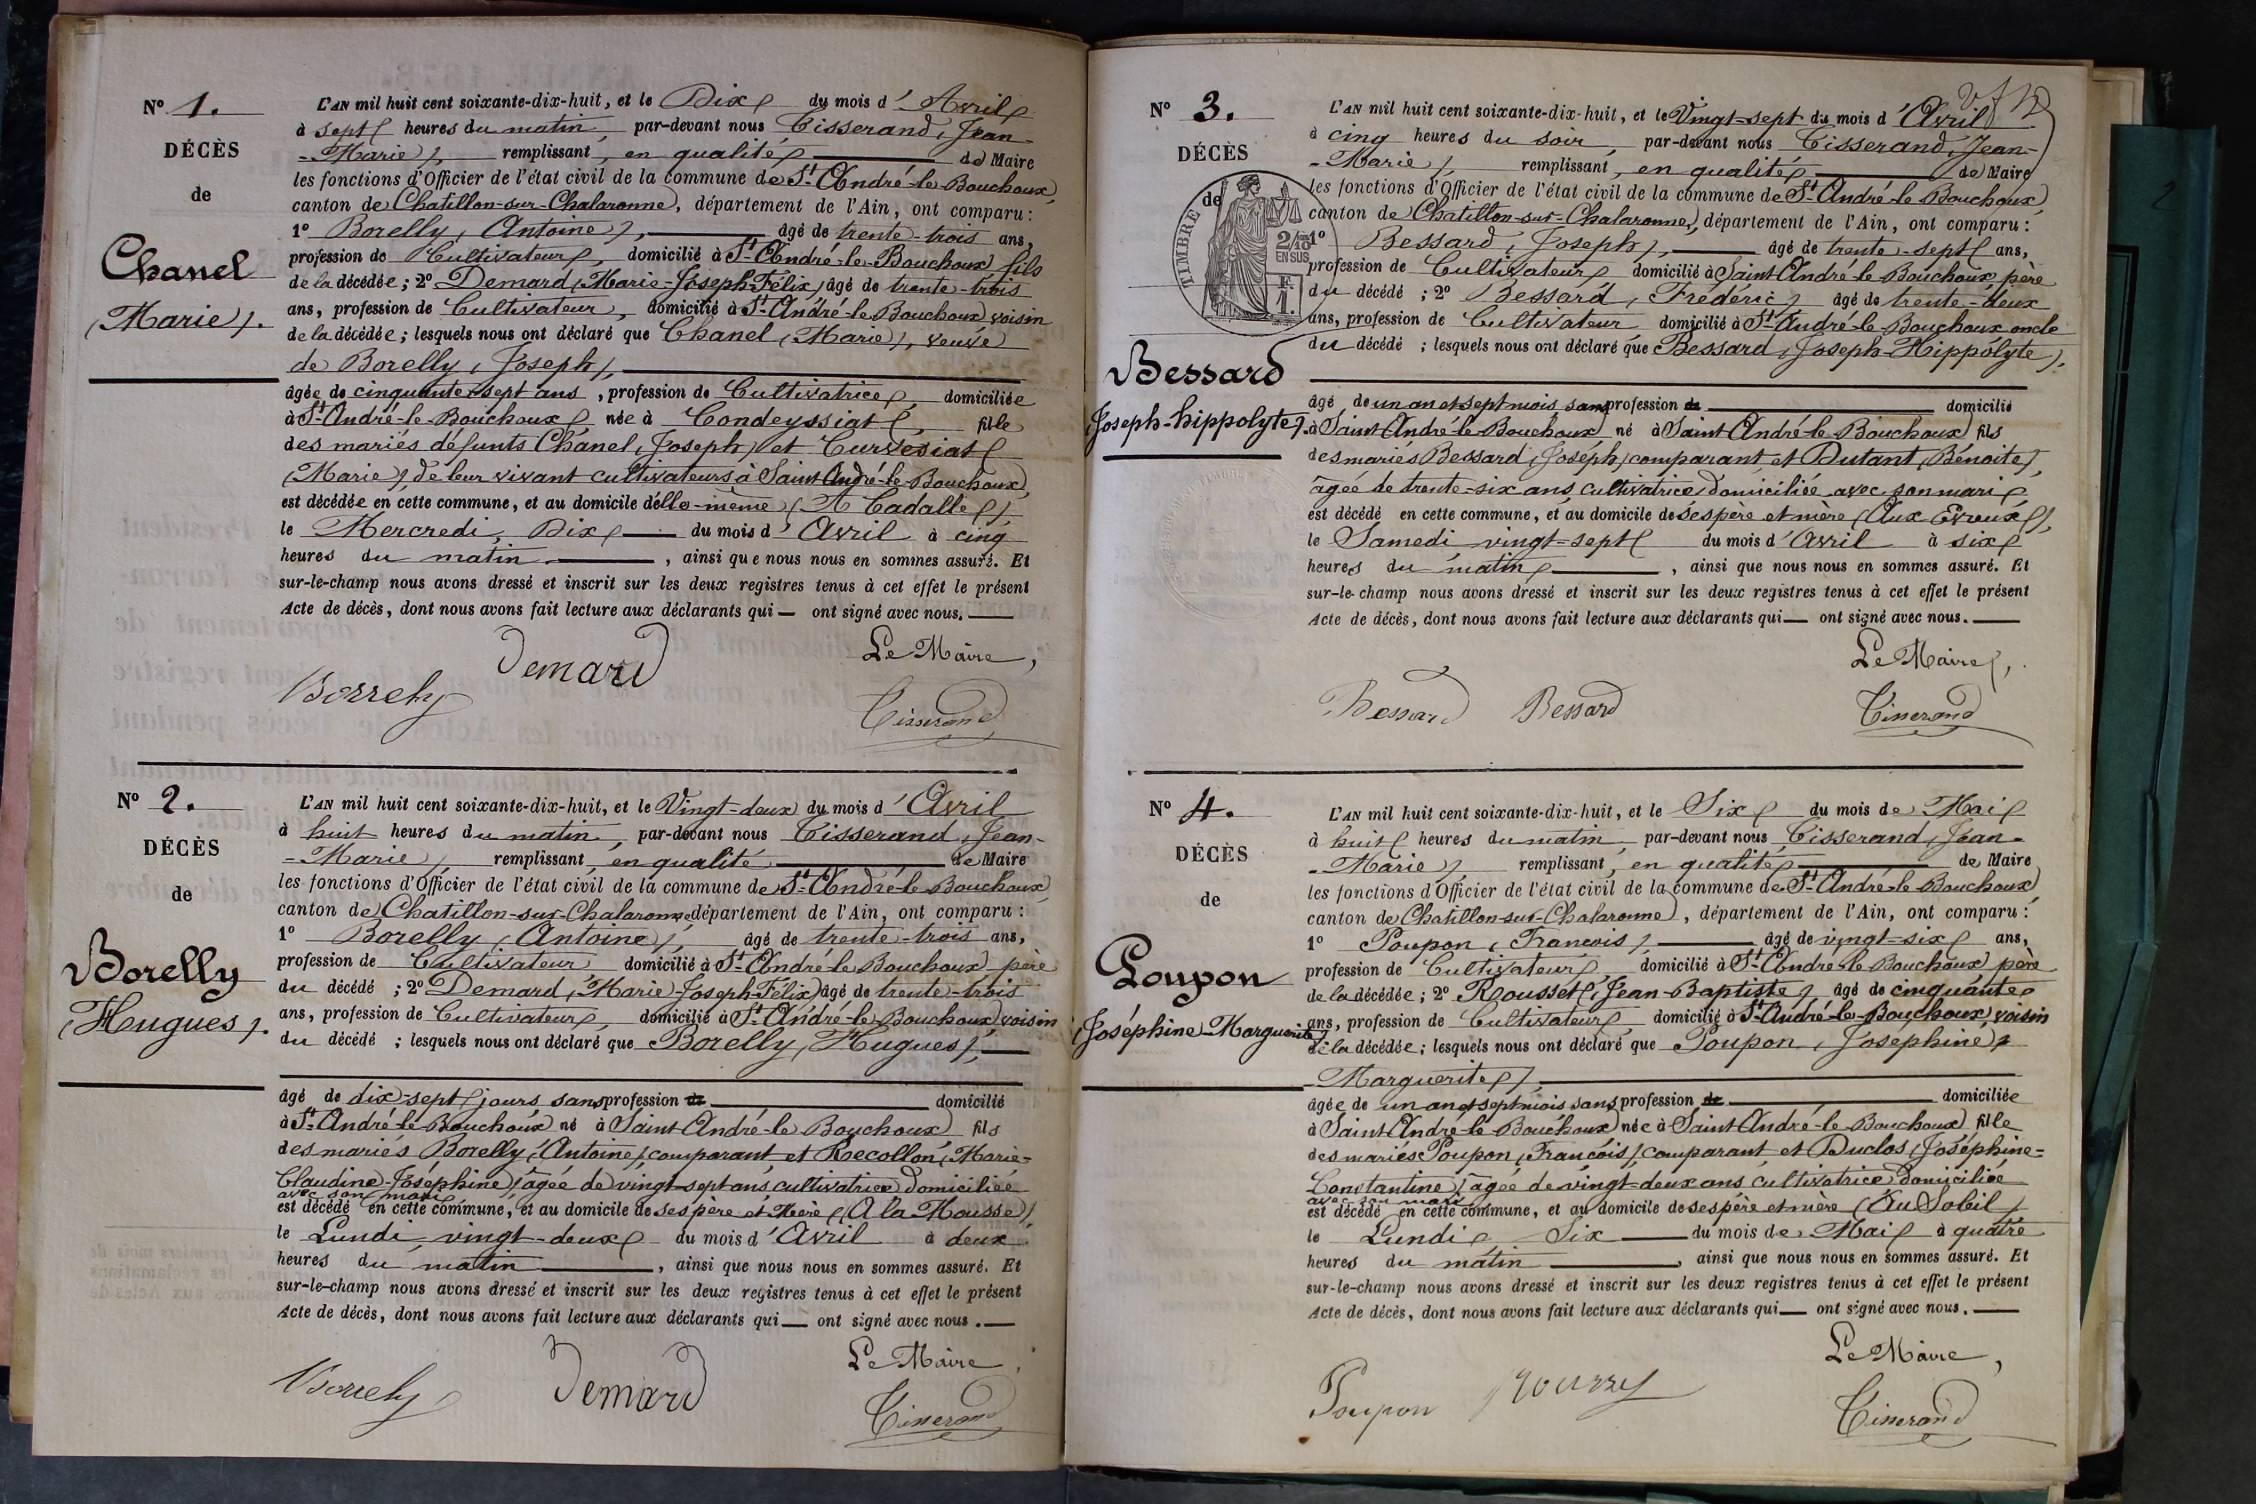 N° 1.
DÉCÈS
de
Chanel
(Marie).
L'AN mil huit cent soixante-dix-huit, et le Dix du mois d'Avril
à sept heures du matin, par-devant nous Tisserand, Jean-
-Marie), remplissant, en qualité de Maire
les fonctions d'Officier de l'état civil de la commune de St-André-le-Bouchoux,
canton de Chatillon-sur-Chalaronne, département de l'Ain, ont comparu :
1° Borelly, (Antoine), âgé de trente-trois ans,
profession de Cultivateur, domicilié à St-André-le-Bouchoux, fils
de la décédée ; 2° Demard, (Marie-Joseph-Félix) âgé de trente-trois
ans, profession de Cultivateur, domicilié à St-André-le-Bouchoux, voisin
de la décédée ; lesquels nous ont déclaré que Chanel, (Marie), veuve
de Borelly, (Joseph),
âgée de cinquante-sept ans, profession de Cultivatrice, domiciliée
à St-André-le-Bouchoux, née à Condeyssiat, fille
des mariés défunts Chanel, (Joseph) et Curvesiat
(Marie), de leur vivant cultivateurs à Saint André-le-Bouchoux,
est décédée en cette commune, et au domicile d'elle-même (A Cadalle),
le Mercredi, Dix du mois d'Avril à cinq
heures du matin, ainsi que nous nous en sommes assuré. Et
sur-le-champ nous avons dressé et inscrit sur les deux registres tenus à cet effet le présent
Acte de décès, dont nous avons fait lecture aux déclarants qui — ont signé avec nous. —
Le Maire,
Borrely Demard Tisserand
N° 2.
DÉCÈS
de
Borelly
(Hugues).
L'AN mil huit cent soixante-dix-huit, et le Vingt-deux du mois d'Avril
à huit heures du matin, par-devant nous Tisserand, Jean-
-Marie), remplissant, en qualité de Maire
les fonctions d'Officier de l'état civil de la commune de St-André-le-Bouchoux,
canton de Chatillon-sur-Chalaronne, département de l'Ain, ont comparu :
1° Borelly, (Antoine), âgé de trente-trois ans,
profession de Cultivateur domicilié à St-André-le-Bouchoux, père
du décédé ; 2° Demard, (Marie-Joseph-Félix) âgé de trente-trois
ans, profession de Cultivateur, domicilié à St-André-le-Bouchoux, voisin
du décédé ; lesquels nous ont déclaré que Borelly, (Hugues),
âgé de dix-sept jours, sans profession de domicilié
à St-André-le-Bouchoux né à Saint André-le-Bouchoux, fils
des mariés Borelly, (Antoine), comparant, et Recollon, (Marie-
Claudine-Joséphine) âgée de vingt-sept ans, cultivatrice domiciliée
avec son mari
est décédé en cette commune, et au domicile de ses père et Mère (A la Mousse),
le Lundi, vingt-deux du mois d'Avril à deux
heures du matin, ainsi que nous nous en sommes assuré. Et
sur-le-champ nous avons dressé et inscrit sur les deux registres tenus à cet effet le présent
Acte de décès, dont nous avons fait lecture aux déclarants qui — ont signé avec nous. —
Le Maire,
Borrely Demard Tisserand
N° 3.
DÉCÈS
de
TIMBRE
2/10
EN SUS
F.
1.
Bessard
(Joseph-hippolyte).
L'AN mil huit cent soixante-dix-huit, et le Vingt-sept du mois d'Avril
à cinq heures du soir, par-devant nous Tisserand, Jean-
-Marie), remplissant, en qualité de Maire
les fonctions d'Officier de l'état civil de la commune de St-André-le-Bouchoux,
canton de Chatillon-sur-Chalaronne, département de l'Ain, ont comparu :
1° Bessard, (Joseph), âgé de trente-sept ans,
profession de Cultivateur domicilié à Saint André-le-Bouchoux, père
du décédé ; 2° Bessard, (Frédéric) âgé de trente-deux
ans, profession de Cultivateur domicilié à St-André-le-Bouchoux oncle
du décédé ; lesquels nous ont déclaré que Bessard, (Joseph-Hippolyte).
âgé de un an et sept mois, sans profession de domicilié
à Saint André-le-Bouchoux, né à Saint André-le-Bouchoux, fils
des mariés Bessard, (Joseph) comparant et Dutant, (Bénoite),
âgée de trente-six ans, cultivatrice, domiciliée avec son mari,
est décédé en cette commune, et au domicile de ses père et mère (Aux Evreux),
le Samedi vingt-sept du mois d'Avril à six
heures du matin, ainsi que nous nous en sommes assuré. Et
sur-le-champ nous avons dressé et inscrit sur les deux registres tenus à cet effet le présent
Acte de décès, dont nous avons fait lecture aux déclarants qui — ont signé avec nous. —
Le Maire,
Bessard Bessard Tisserand
N° 4.
DÉCÈS
de
Poupon
(Joséphine-Marguerite)
L'AN mil huit cent soixante-dix-huit, et le Six du mois de Mai
à huit heures du matin, par-devant nous Tisserand, Jean-
-Marie), remplissant, en qualité de Maire
les fonctions d'Officier de l'état civil de la commune de St-André-le-Bouchoux,
canton de Chatillon-sur-Chalaronne, département de l'Ain, ont comparu :
1° Poupon, (Francois), âgé de vingt-six ans,
profession de Cultivateur, domicilié à St-André-le-Bouchoux, père
de la décédée ; 2° Rousset, (Jean-Baptiste), âgé de cinquante
ans, profession de Cultivateur, domicilié à St-André-le-Bouchoux, voisin
de la décédée ; lesquels nous ont déclaré que Poupon, (Joséphine
Marguerite),
âgée de un an et sept mois sans profession de domiciliée
à Saint André-le-Bouchoux, née à Saint-André-le-Bouchoux, fille
des mariés Poupon, (Francois) comparant et Duclos (Joséphine-
Constantine), âgée de vingt-deux ans, cultivatrice domiciliée
avec son mari
est décédée en cette commune, et au domicile de ses père et mère (Au Soleil),
le Lundi, Six du mois de Mai à quatre
heures du matin, ainsi que nous nous en sommes assuré. Et
sur-le-champ nous avons dressé et inscrit sur les deux registres tenus à cet effet le présent
Acte de décès, dont nous avons fait lecture aux déclarants qui — ont signé avec nous. —
Le Maire,
Poupon Tisserand